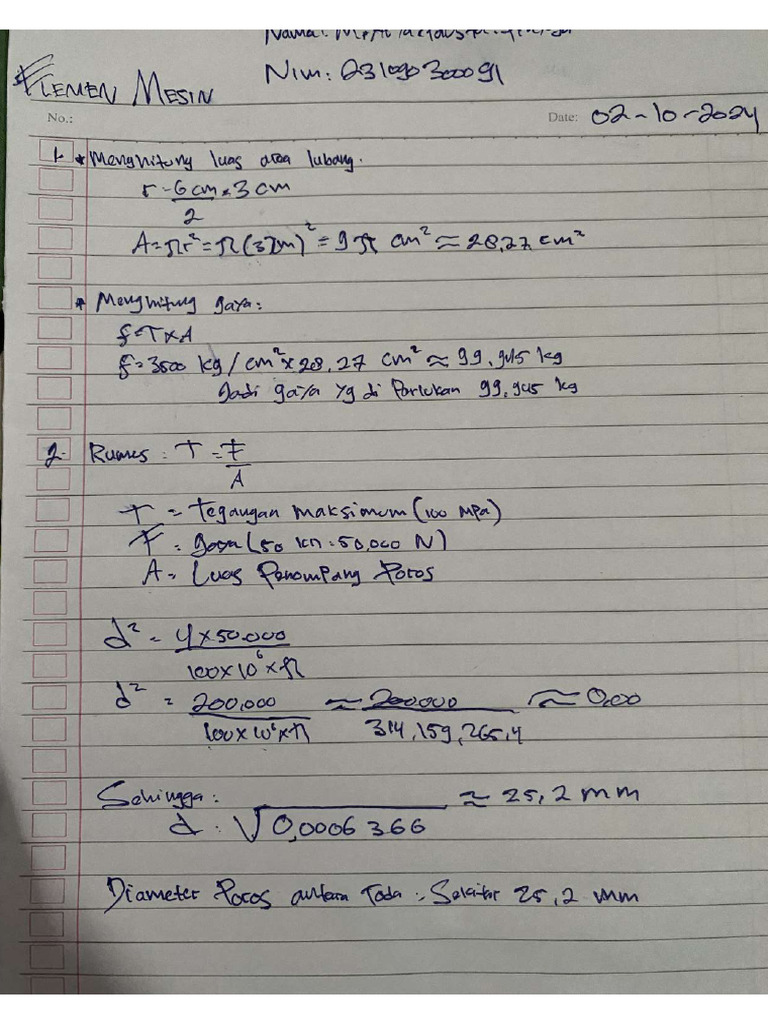 Nama:
Nim: 031090300091
ELEMEN MESIN
No.:
Date: 02-10-2024
1. * Menghitung luas area lubang.
r = 6 cm = 3 cm
2
A = πr² = π(3 cm)² = 9π cm² ≈ 28,27 cm²
* Menghitung gaya:
F = T x A
F = 3500 kg/cm² x 28,27 cm² ≈ 99.945 kg
Jadi gaya yg di Perlukan 99,945 kg
2. Rumus : T = F
A
T = Tegangan maksimum (100 MPa)
F = gaya (50 kn = 50,000 N)
A = Luas Penampang Poros
d² = 4 x 50.000
100 x 10⁶ x π
d² = 200,000 ≈ 200.000 ≈ 0,00
100 x 10⁶ x π 314,159,265,4
Sehingga: ≈ 25,2 mm
d : √0,0006366
Diameter Poros Roda : Sekitar 25,2 mm